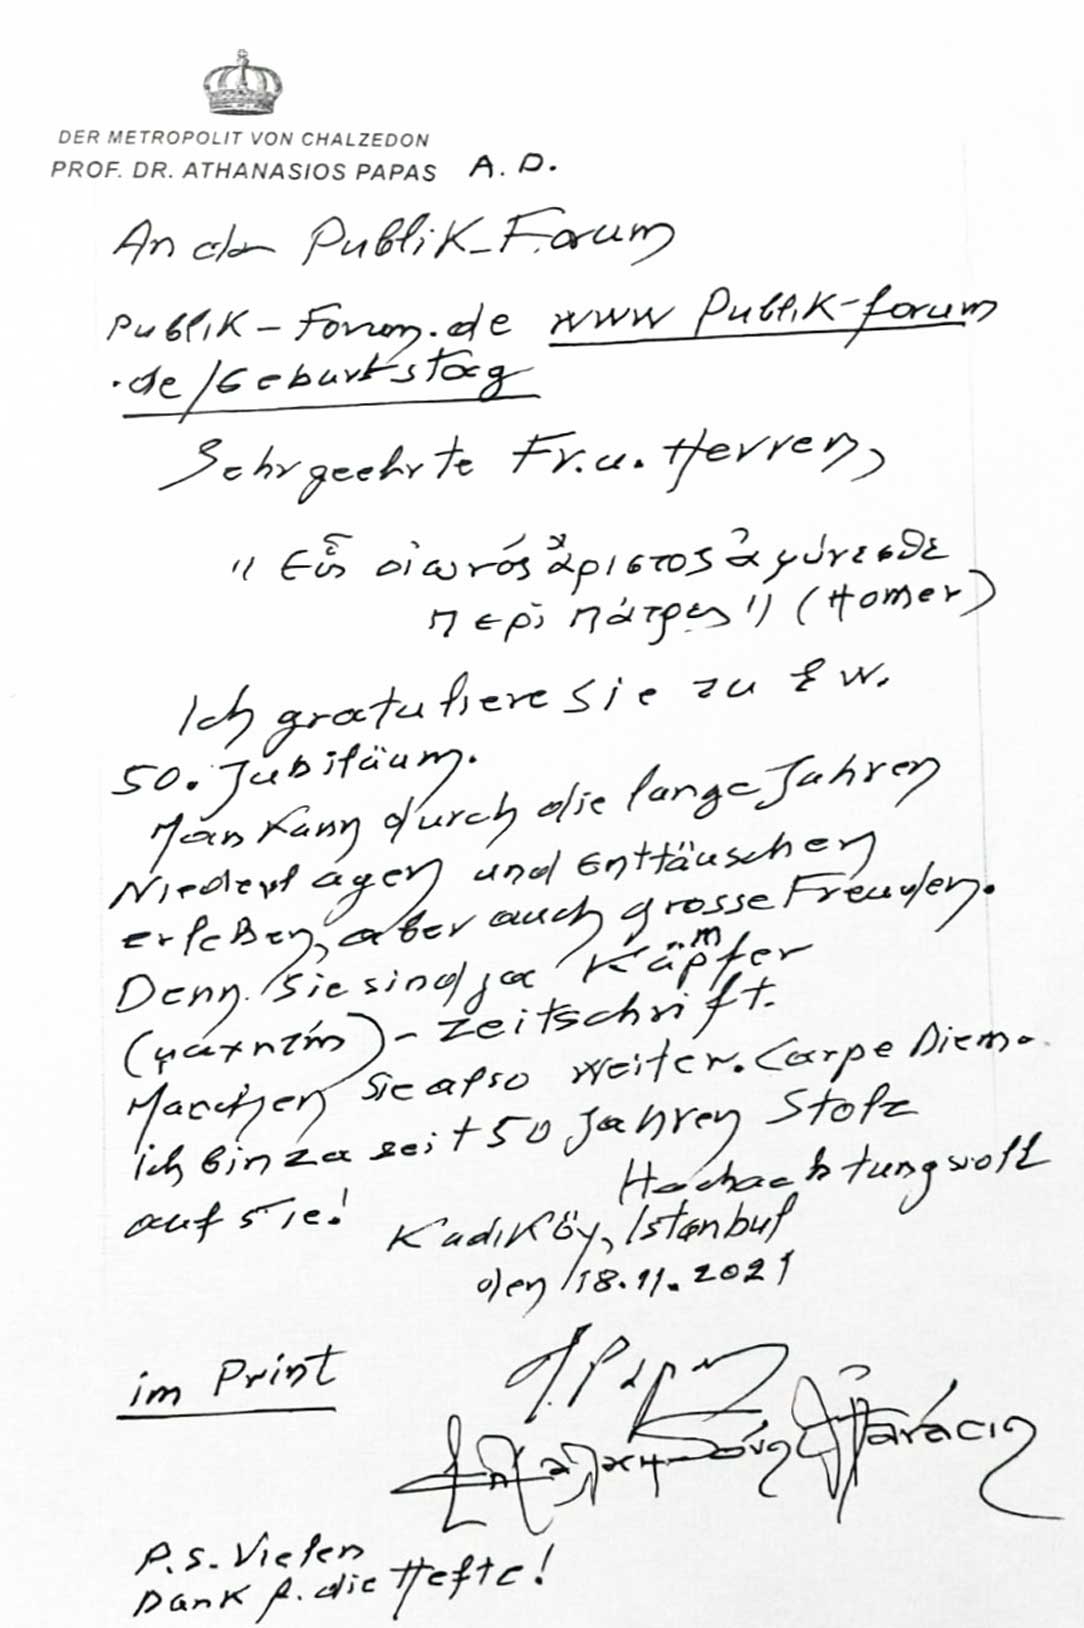 DER METROPOLIT VON CHALZEDON
PROF. DR. ATHANASIOS PAPAS A. D.
An da Publik-Forum
Publik-Forum.de www Publik-forum
.de/Geburtstag
Sehrgeehrte Fr. u. Herren,
"Εἷς οἰωνός ἄριστος ἀμύνεσθε
περὶ πάτρης" (Homer)
Ich gratuliere Sie zu Ew.
50. Jubiläum.
Man kann durch die lange Jahren
Niederlagen und Enttäuschen
erleben, aber auch grosse Freuden.
Denn Sie sind ja Kämpfer
(μαχητής)-Zeitschrift.
Machen Sie also weiter. Carpe Diem.
Ich bin za seit 50 Jahren Stolz
auf Sie!
Hochachtungsvoll
Kadıköy, Istanbul
den 18.11.2021
im Print
A. Papas
Αθανάσιος
P.S. Vielen
Dank f. die Hefte!